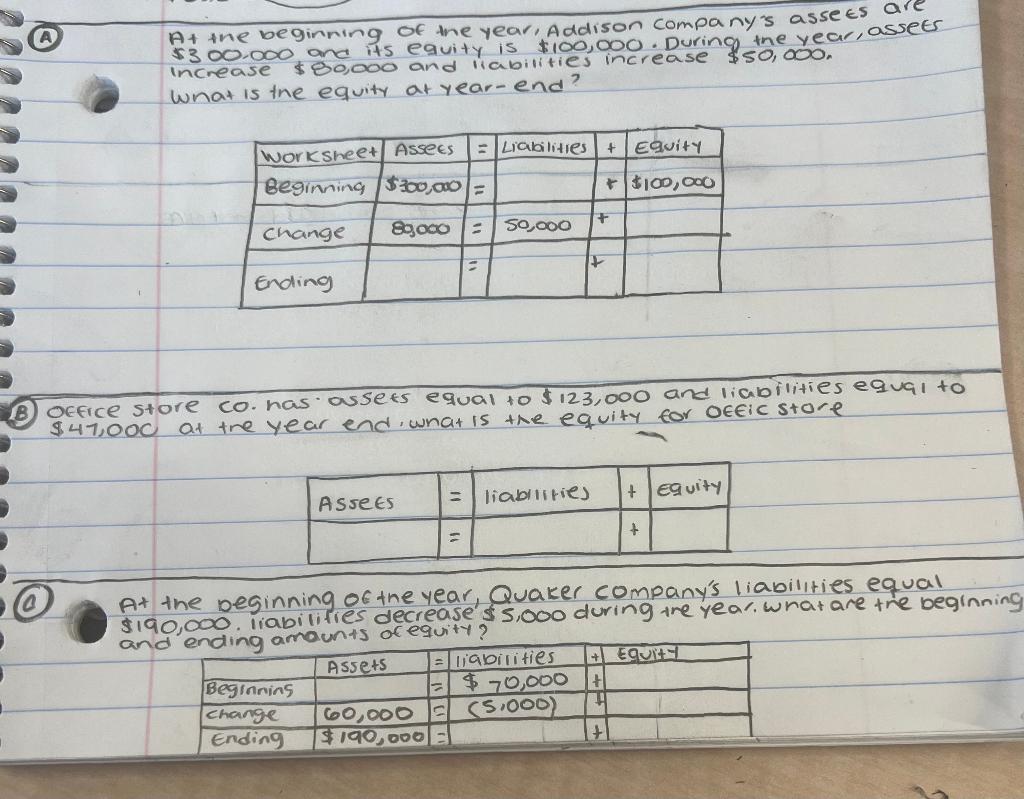 A
At the beginning of the year, Addison company's assets are
$300,000 and its equity is $100,000. During the year, assets
increase $80,000 and liabilities increase $50,000.
What is the equity at year-end?
Worksheet Assets = Liabilities + Equity
Beginning $300,000 = + $100,000
change 80,000 = 50,000 +
= +
Ending
B office store co. has assets equal to $123,000 and liabilities equal to
$47,000 at the year end. what is the equity for offic store
Assets = liabilities + Equity
= +
C
At the beginning of the year, Quaker company's liabilities equal
$190,000. liabilities decrease $5,000 during the year. what are the beginning
and ending amounts of equity?
Assets = liabilities + Equity
Beginning = $70,000 +
change 60,000 = (5,000) +
Ending $190,000 = +